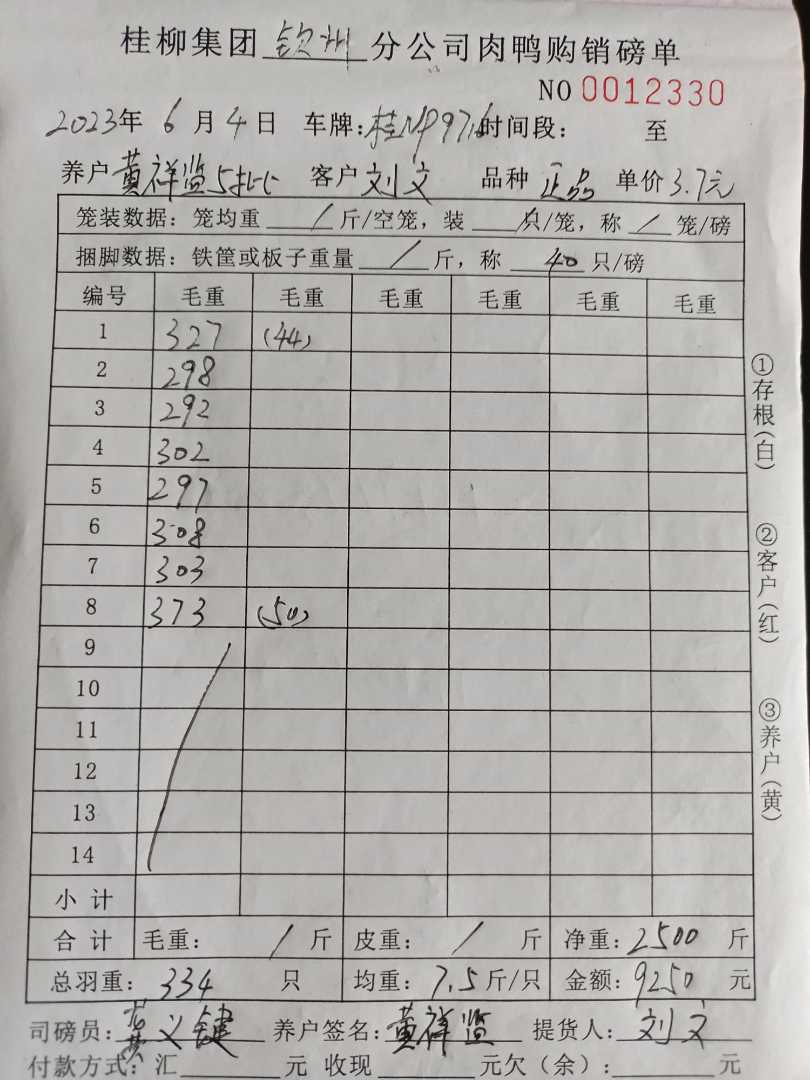 桂柳集团 钦州 分公司肉鸭购销磅单
NO 0012330
2023年 6 月 4 日 车牌: 时间段: 至
养户 黄祥监5批 客户 刘文 品种 正品 单价 3.7元
笼装数据: 笼均重 / 斤/空笼, 装 / 只/笼, 称 / 笼/磅
捆脚数据: 铁筐或板子重量 / 斤, 称 40 只/磅
编号 毛重 毛重 毛重 毛重 毛重 毛重
1 327 (44)
2 298
3 292
4 302
5 297
6 308
7 303
8 373 (50)
9
10
11
12
13
14
小计
合计 毛重: / 斤 皮重: / 斤 净重: 2500 斤
总羽重: 334 只 均重: 7.5 斤/只 金额: 9250 元
司磅员: 黄义键 养户签名: 黄祥监 提货人: 刘文
付款方式: 汇 元 收现 元欠(余): 元
①存根(白)
②客户(红)
③养户(黄)